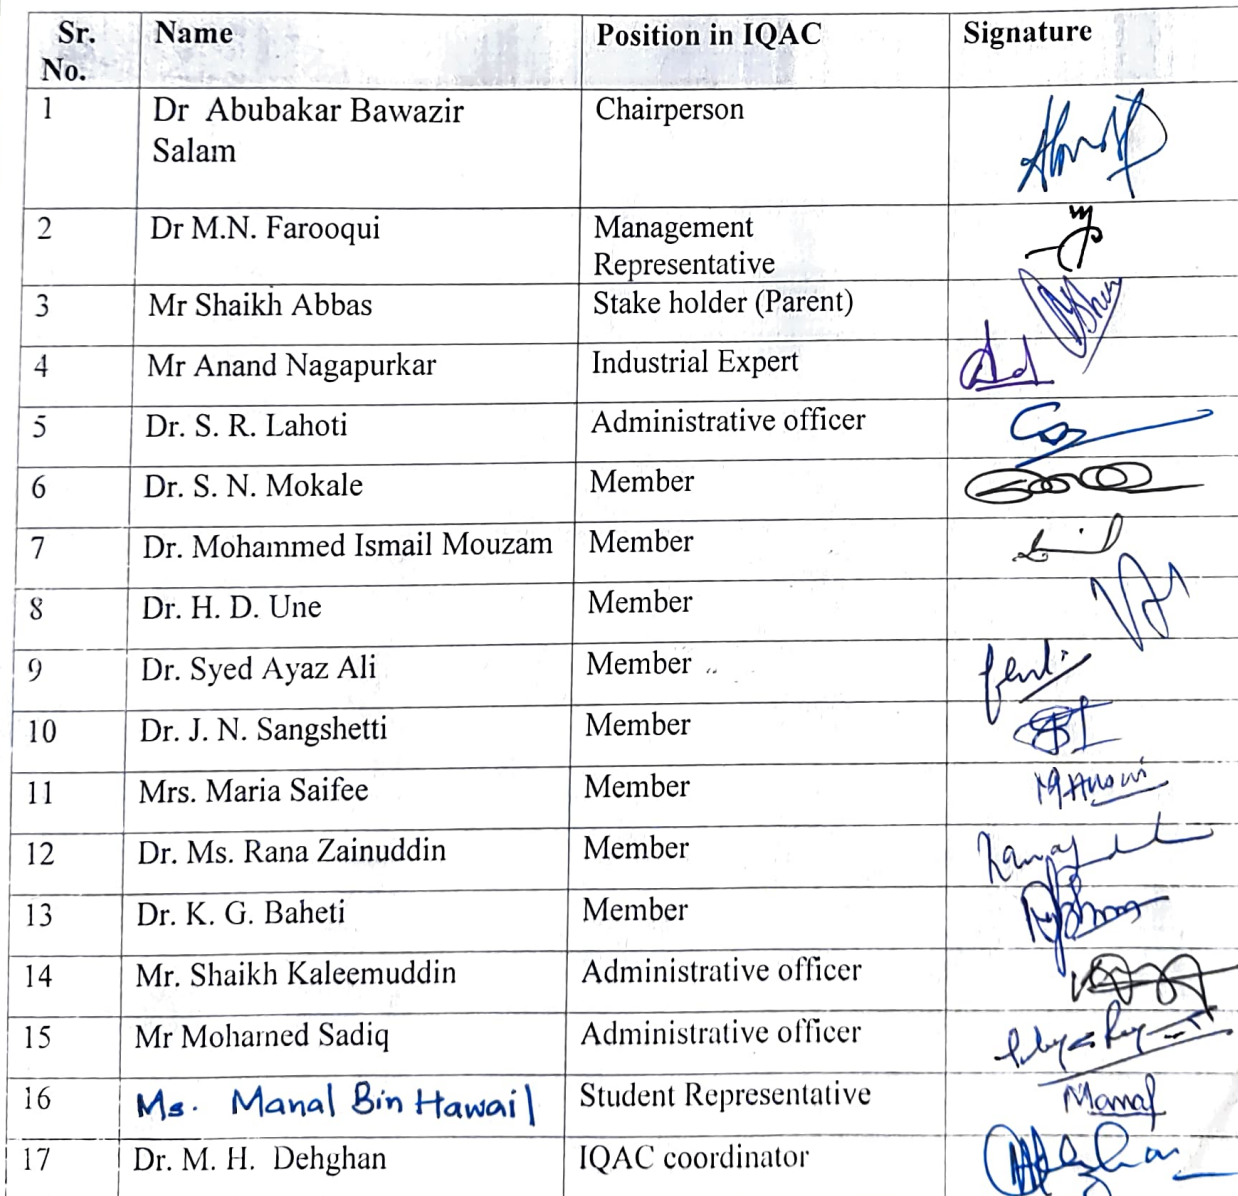 Sr. No. Name Position in IQAC Signature
1 Dr Abubakar Bawazir Salam Chairperson
2 Dr M.N. Farooqui Management Representative
3 Mr Shaikh Abbas Stake holder (Parent)
4 Mr Anand Nagapurkar Industrial Expert
5 Dr. S. R. Lahoti Administrative officer
6 Dr. S. N. Mokale Member
7 Dr. Mohammed Ismail Mouzam Member
8 Dr. H. D. Une Member
9 Dr. Syed Ayaz Ali Member
10 Dr. J. N. Sangshetti Member
11 Mrs. Maria Saifee Member
12 Dr. Ms. Rana Zainuddin Member
13 Dr. K. G. Baheti Member
14 Mr. Shaikh Kaleemuddin Administrative officer
15 Mr Mohamed Sadiq Administrative officer
16 Ms. Manal Bin Hawail Student Representative
17 Dr. M. H. Dehghan IQAC coordinator